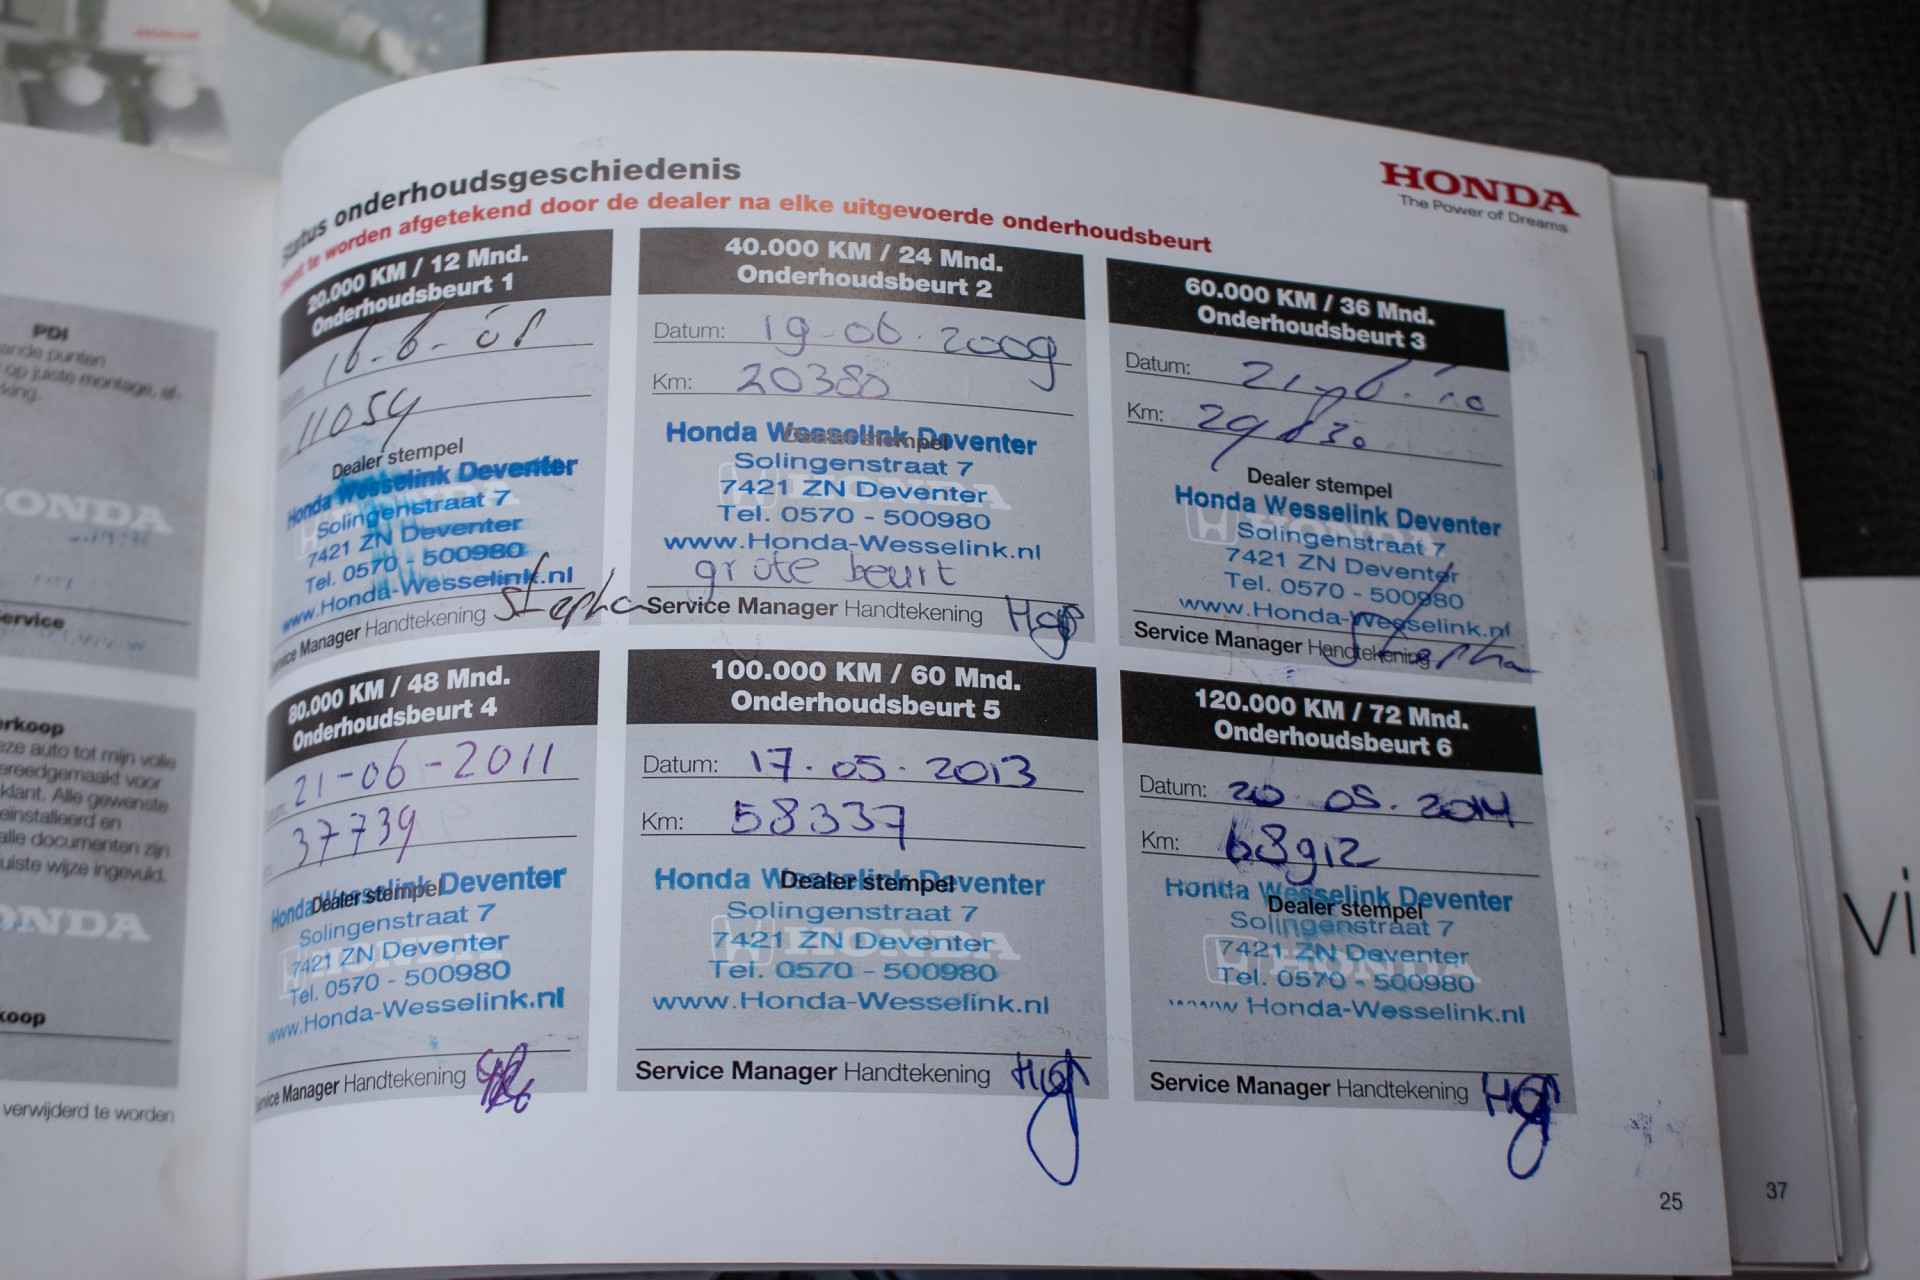 PDI
op juiste montage, af-
HONDA
Service
eze auto tot mijn volle
klant. Alle gewenste
alle documenten zijn
juiste wijze ingevuld.
HONDA
verwijderd te worden
Status onderhoudsgeschiedenis
te worden afgetekend door de dealer na elke uitgevoerde onderhoudsbeurt
HONDA
The Power of Dreams
20.000 KM / 12 Mnd.
Onderhoudsbeurt 1
16-6-08
11054
Dealer stempel
Honda Wesselink Deventer
Solingenstraat 7
7421 ZN Deventer
Tel. 0570 - 500980
www.Honda-Wesselink.nl
Service Manager Handtekening Stepha
40.000 KM / 24 Mnd.
Onderhoudsbeurt 2
Datum: 19-06-2009
Km: 20380
Dealer stempel
Honda Wesselink Deventer
Solingenstraat 7
7421 ZN Deventer
Tel. 0570 - 500980
www.Honda-Wesselink.nl
grote beurt
Service Manager Handtekening
60.000 KM / 36 Mnd.
Onderhoudsbeurt 3
Datum: 21-6-10
Km: 29830
Dealer stempel
Honda Wesselink Deventer
Solingenstraat 7
7421 ZN Deventer
Tel. 0570 - 500980
www.Honda-Wesselink.nl
Service Manager Handtekening Stepha
80.000 KM / 48 Mnd.
Onderhoudsbeurt 4
21-06-2011
37739
Dealer stempel
Honda Wesselink Deventer
Solingenstraat 7
7421 ZN Deventer
Tel. 0570 - 500980
www.Honda-Wesselink.nl
Service Manager Handtekening
100.000 KM / 60 Mnd.
Onderhoudsbeurt 5
Datum: 17-05-2013
Km: 58337
Dealer stempel
Honda Wesselink Deventer
Solingenstraat 7
7421 ZN Deventer
Tel. 0570 - 500980
www.Honda-Wesselink.nl
Service Manager Handtekening
120.000 KM / 72 Mnd.
Onderhoudsbeurt 6
Datum: 20-05-2014
Km: 68912
Dealer stempel
Honda Wesselink Deventer
Solingenstraat 7
7421 ZN Deventer
Tel. 0570 - 500980
www Honda-Wesselink.nl
Service Manager Handtekening
25
37
vi